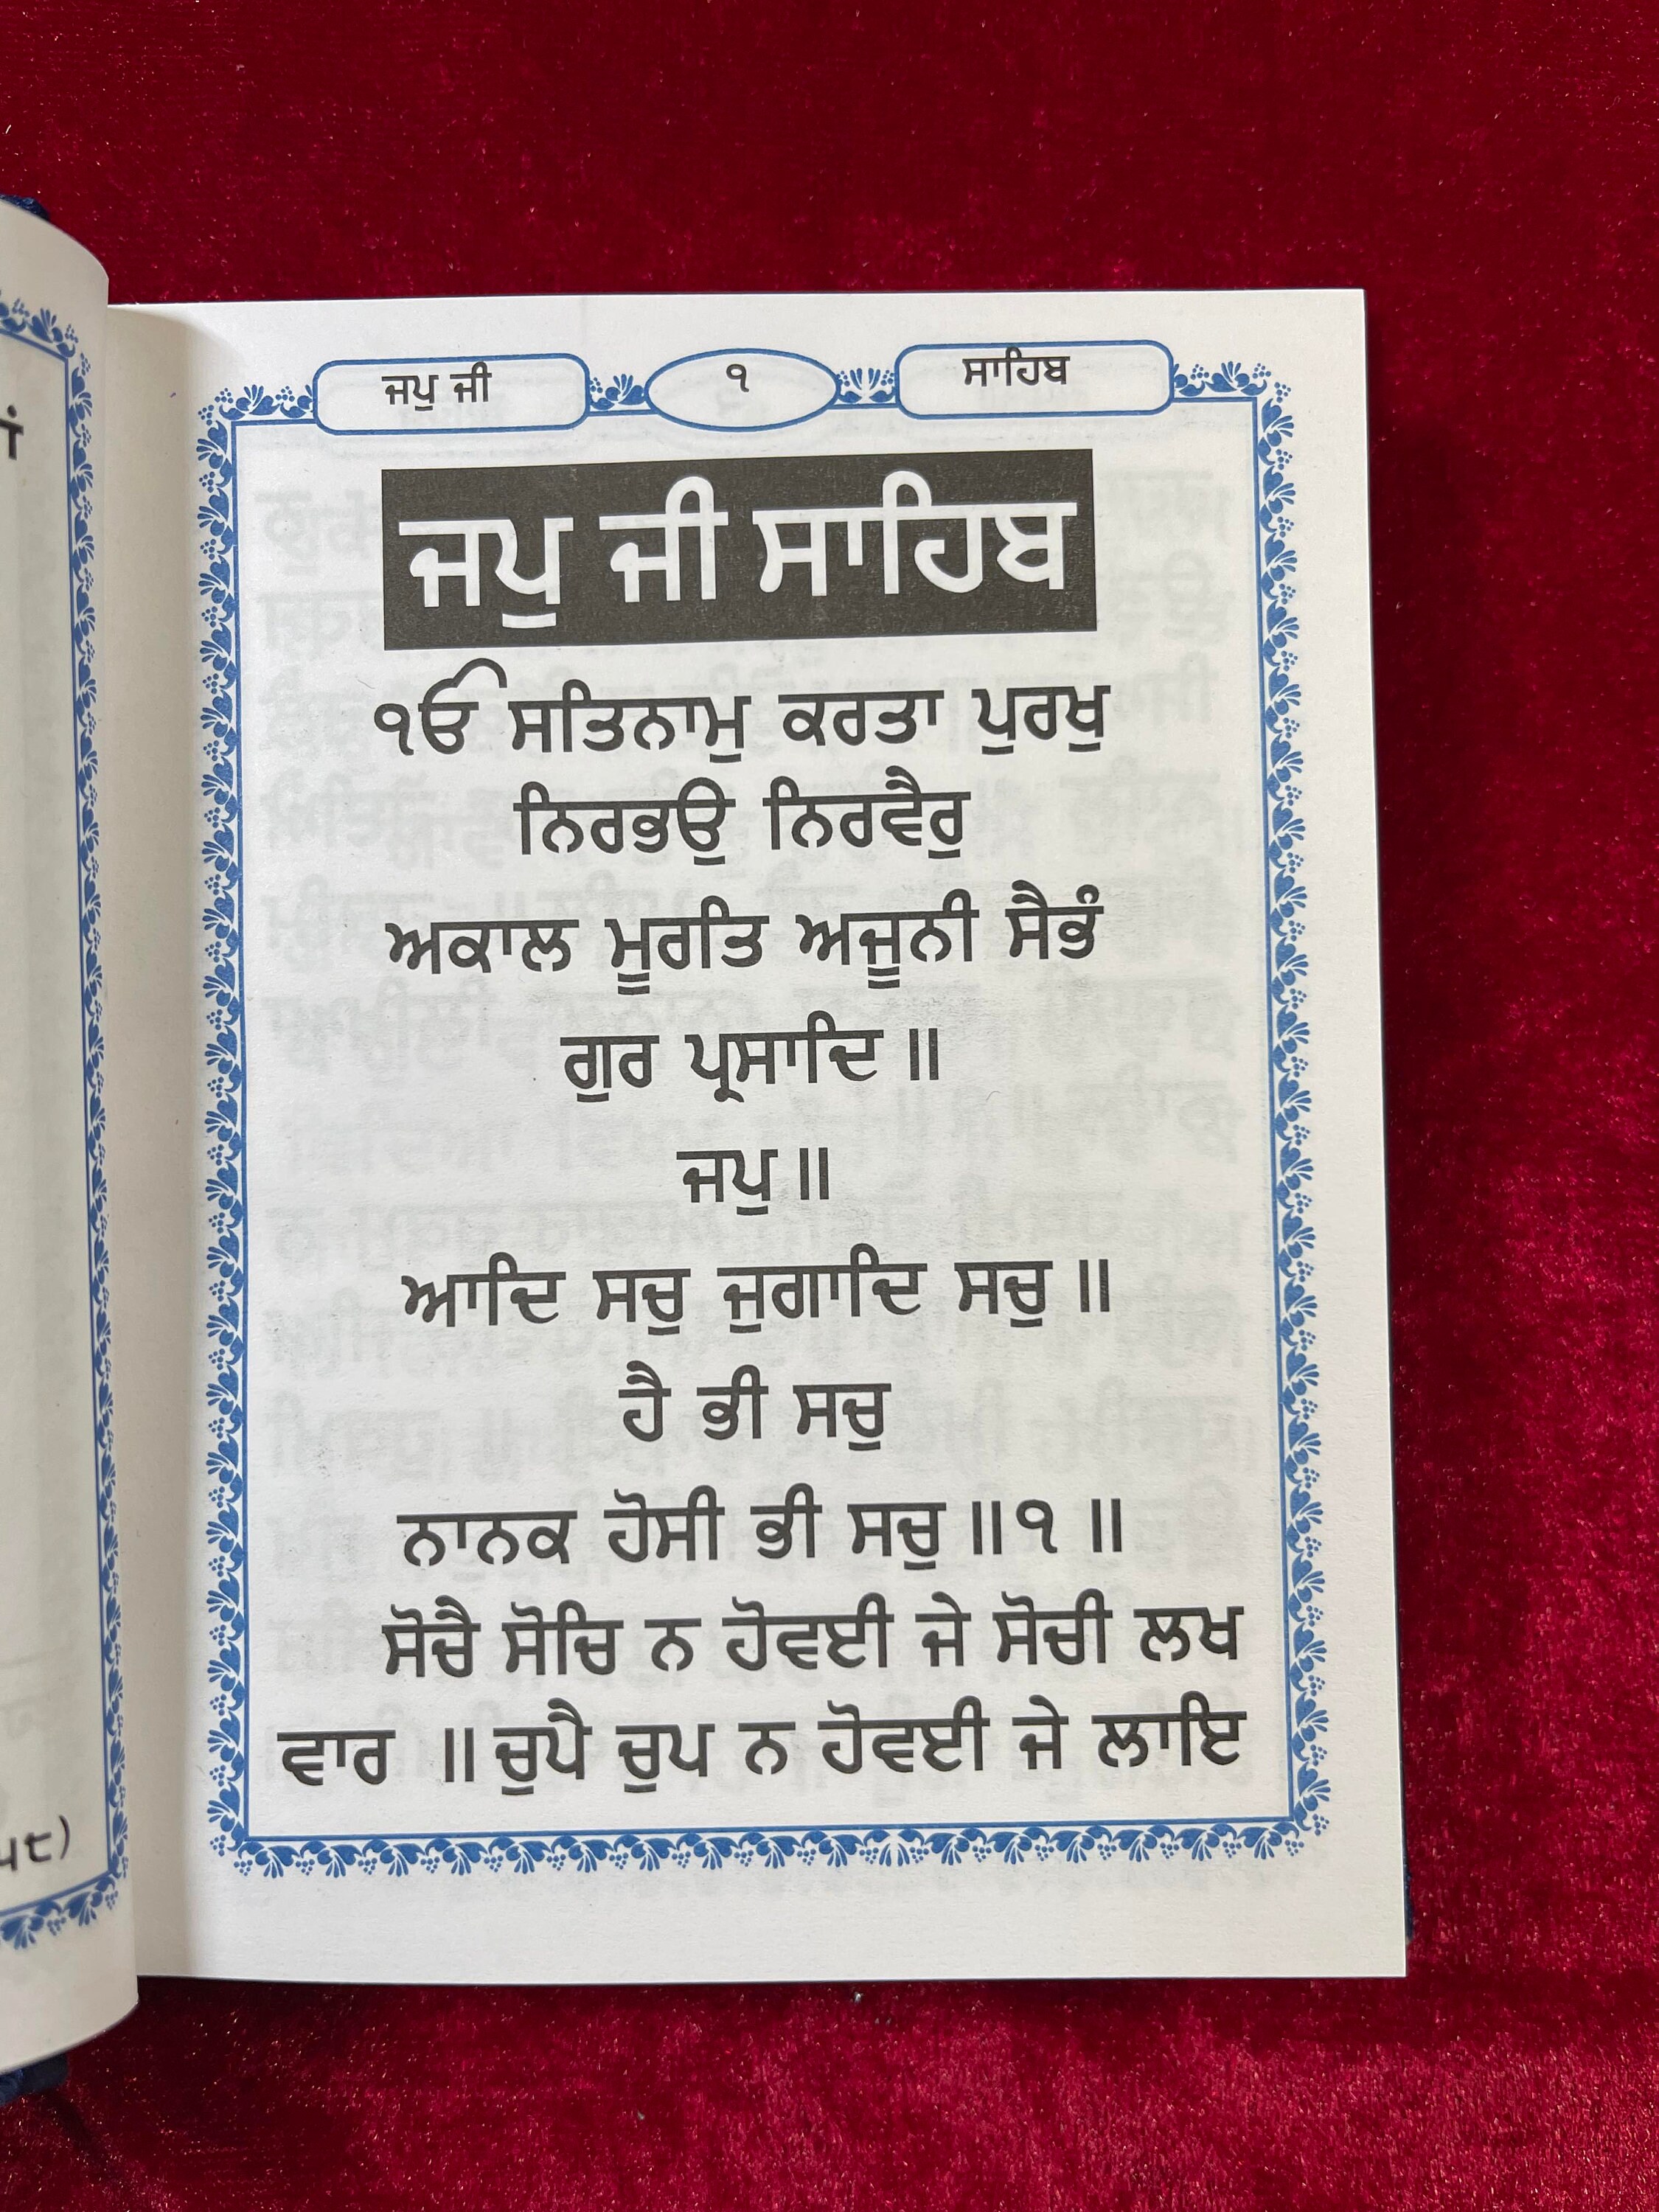 ਜਪੁ ਜੀ
੧
ਸਾਹਿਬ
ਜਪੁ ਜੀ ਸਾਹਿਬ
ੴ ਸਤਿਨਾਮੁ ਕਰਤਾ ਪੁਰਖੁ
ਨਿਰਭਉ ਨਿਰਵੈਰੁ
ਅਕਾਲ ਮੂਰਤਿ ਅਜੂਨੀ ਸੈਭੰ
ਗੁਰ ਪ੍ਰਸਾਦਿ ॥
ਜਪੁ ॥
ਆਦਿ ਸਚੁ ਜੁਗਾਦਿ ਸਚੁ ॥
ਹੈ ਭੀ ਸਚੁ
ਨਾਨਕ ਹੋਸੀ ਭੀ ਸਚੁ ॥੧॥
ਸੋਚੈ ਸੋਚਿ ਨ ਹੋਵਈ ਜੇ ਸੋਚੀ ਲਖ
ਵਾਰ ॥ ਚੁਪੈ ਚੁਪ ਨ ਹੋਵਈ ਜੇ ਲਾਇ